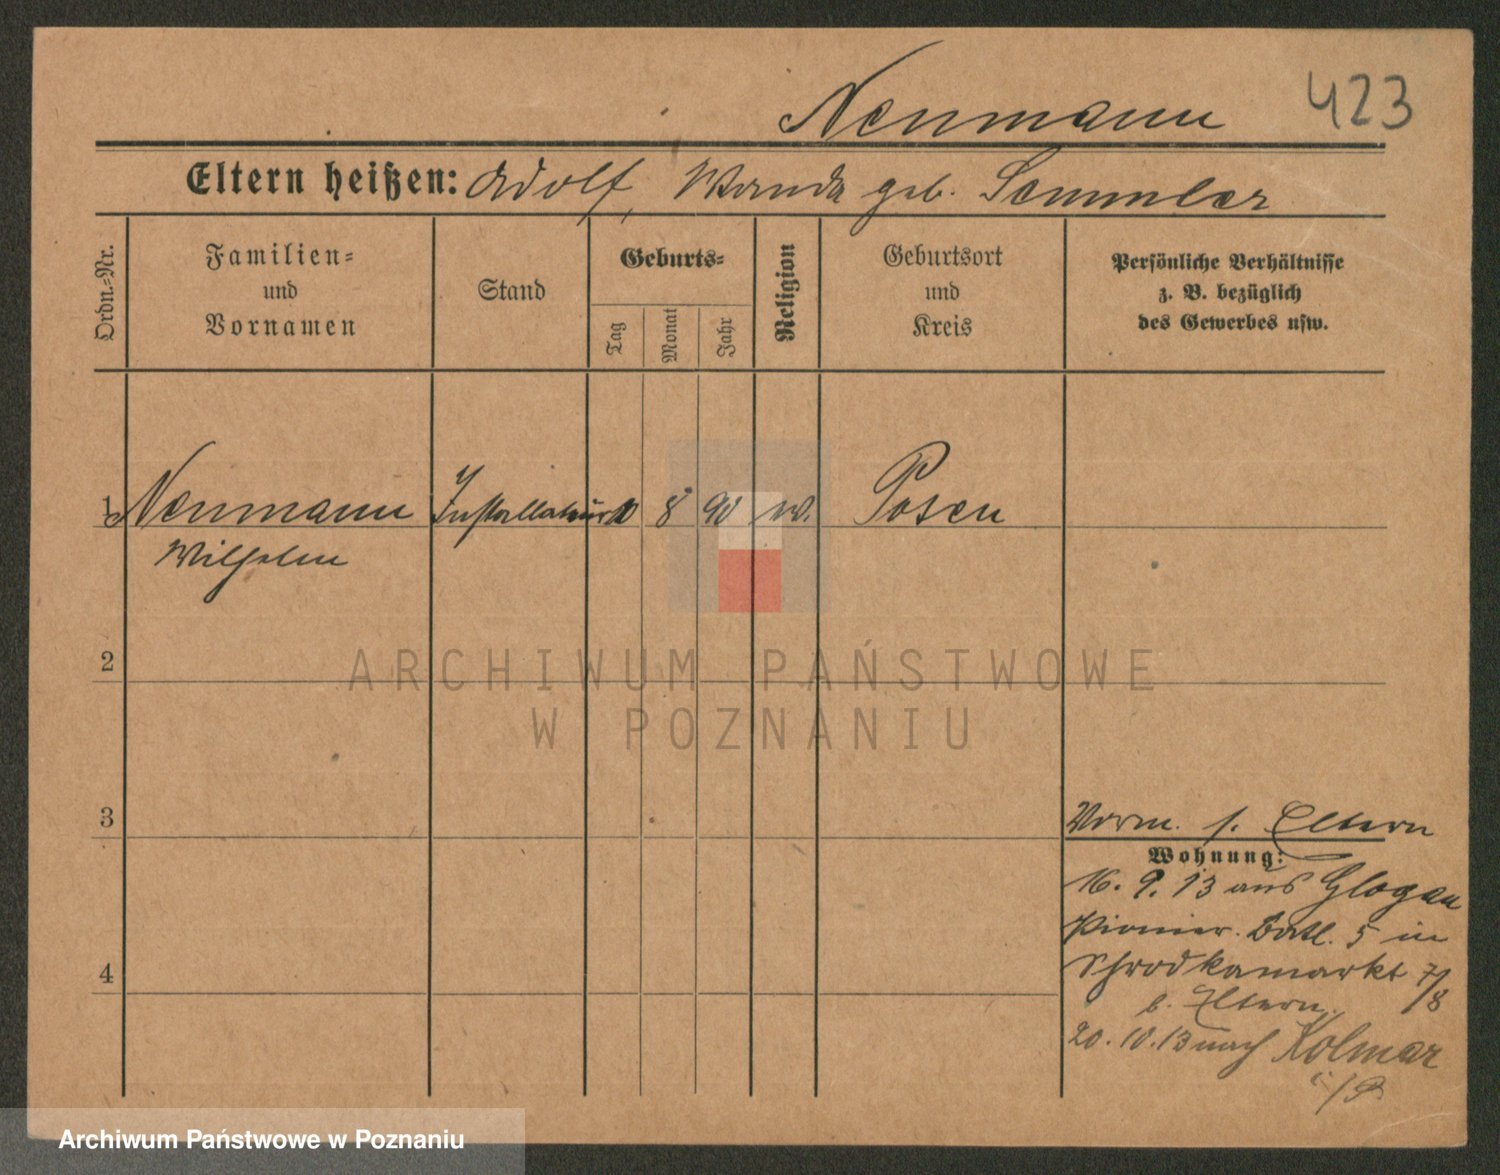 Neumann 423
Eltern heißen: Adolf, Wanda geb. Semmler
Ordn.-Nr.
Familien-
und
Vornamen
Stand
Geburts-
Tag
Monat
Jahr
Religion
Geburtsort
und
Kreis
Persönliche Verhältnisse
z. B. bezüglich
des Gewerbes usw.
1 Neumann Installateur 8 90 Posen
Wilhelm
2
ARCHIWUM PAŃSTWOWE
W POZNANIU
3
Vorm. s. Eltern
Wohnung:
16. 9. 13 aus Glogau
Pionier. Batl. 5 in
Schrodkamarkt 7/8
b. Eltern.
4
20. 10. 13 nach Kolmar
i/P
Archiwum Państwowe w Poznaniu